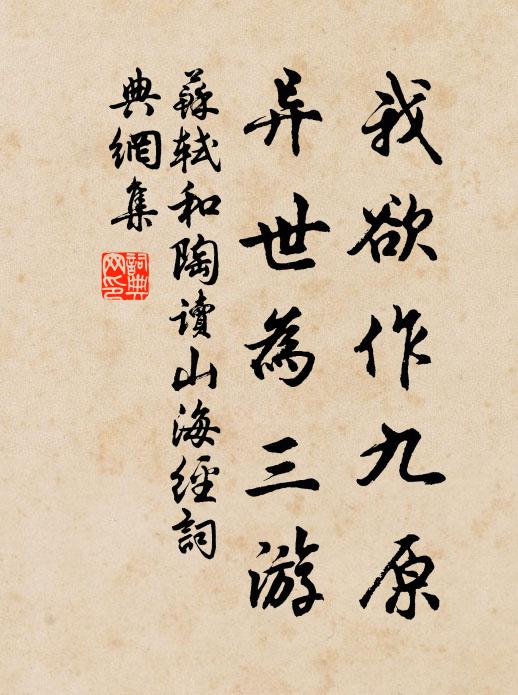 我欲作九原
异世為三游
蘇軾和陶讀山海經詞
典網集
詞典网印